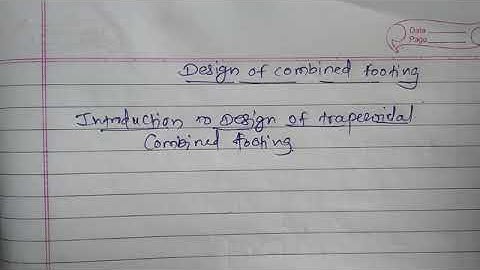 Data
Page
Design of combined footing
Introduction to Design of trapezoidal
Combined footing